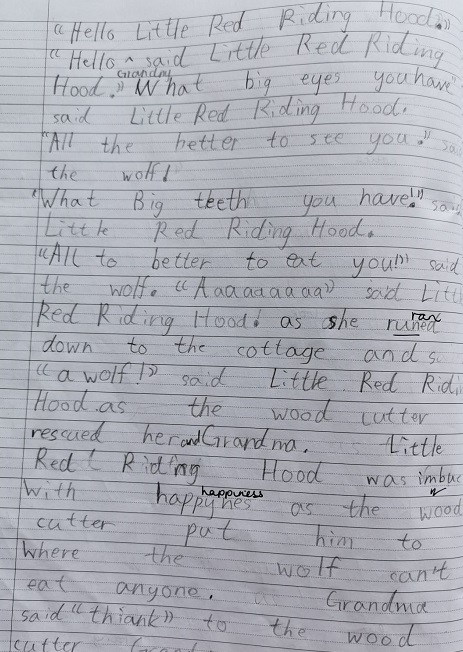 "Hello Little Red Riding Hood."
"Hello ^ said Little Red Riding
Grandma
Hood." What big eyes you have"
said Little Red Riding Hood.
"All the better to see you." sa
the wolf!
"What Big teeth you have!" sa
Little Red Riding Hood.
"All to better to eat you!" said
the wolf. "Aaaaaaaaa" said Littl
Red Riding Hood! as she runed
ran
down to the cottage and s
"a wolf!" said Little Red Ridi
Hood.as the wood cutter
rescued her and Grandma. Little
Red Riding Hood was imbue
with happynes as the wood
happiness
cutter put him to
Where the wolf can't
eat anyone. Grandma
said "thiank" to the wood
cutter